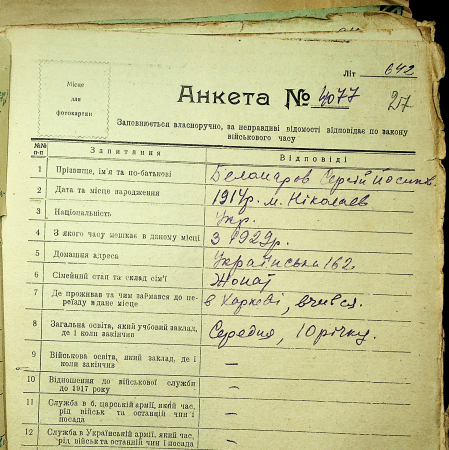 Літ 642
Місце
для
фотокартки
Анкета № 4077
217
Заповнюється власноручно, за неправдиві відомості відповідає по закону
військового часу
№№ п-п Запитання Відповіді
1 Прізвище, ім'я та по-батькові Сергій
2 Дата та місце народження 1914р. м. Ніколаев
3 Національність Укр.
4 З якого часу мешкає в даному місці З 1929р.
5 Домашня адреса Українська 162
6 Сімейний стан та склад сім'ї Жонат
7 Де проживав та чим займався до пе-
реїзду в дане місце в Харкові, вчився.
8 Загальна освіта, який учбовий заклад,
де і коли закінчив Середня, 10 річку.
9 Військова освіта, який заклад, де і
коли закінчив —
10 Відношення до військової служби
до 1917 року —
11 Служба в б. царській армії, який час,
рід військ та останній чин і
посада —
12 Служба в Українській армії, який час,
рід військ та останній чин і посада —